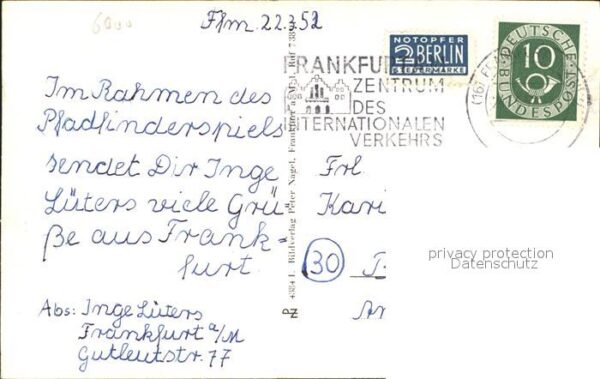 6000
Ffm 22.7.52
NOTOPFER
2 BERLIN
STEUERMARKE
DEUTSCHE
BUNDESPOST
10
FRANKFURT
ZENTRUM
DES
INTERNATIONALEN
VERKEHRS
(16)
Im Rahmen des
Pfadfinderspiels
sendet Dir Inge
Lüters viele Grü
ße aus Frank-
furt
Abs: Inge Lüters
Frankfurt a/M
Gutleutstr. 77
Bildverlag Peter Nagel, Frankfurt a. M.
Frl.
Kari
(30)
An
privacy protection
Datenschutz